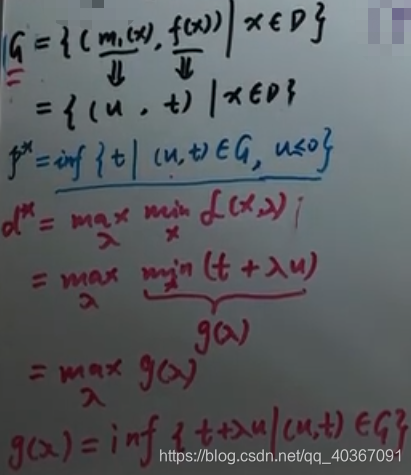 G = {(m₁(x), f(x)) | x ∈ D}
= {(u, t) | x ∈ D}
p* = inf {t | (u,t) ∈ G, u ≤ 0}
d* = max min L(x,λ)
λ x
= max min (t + λu)
λ x
g(λ)
= max g(λ)
λ
g(x) = inf {t+λu | (u,t) ∈ G}
https://blog.csdn.net/qq_40367091